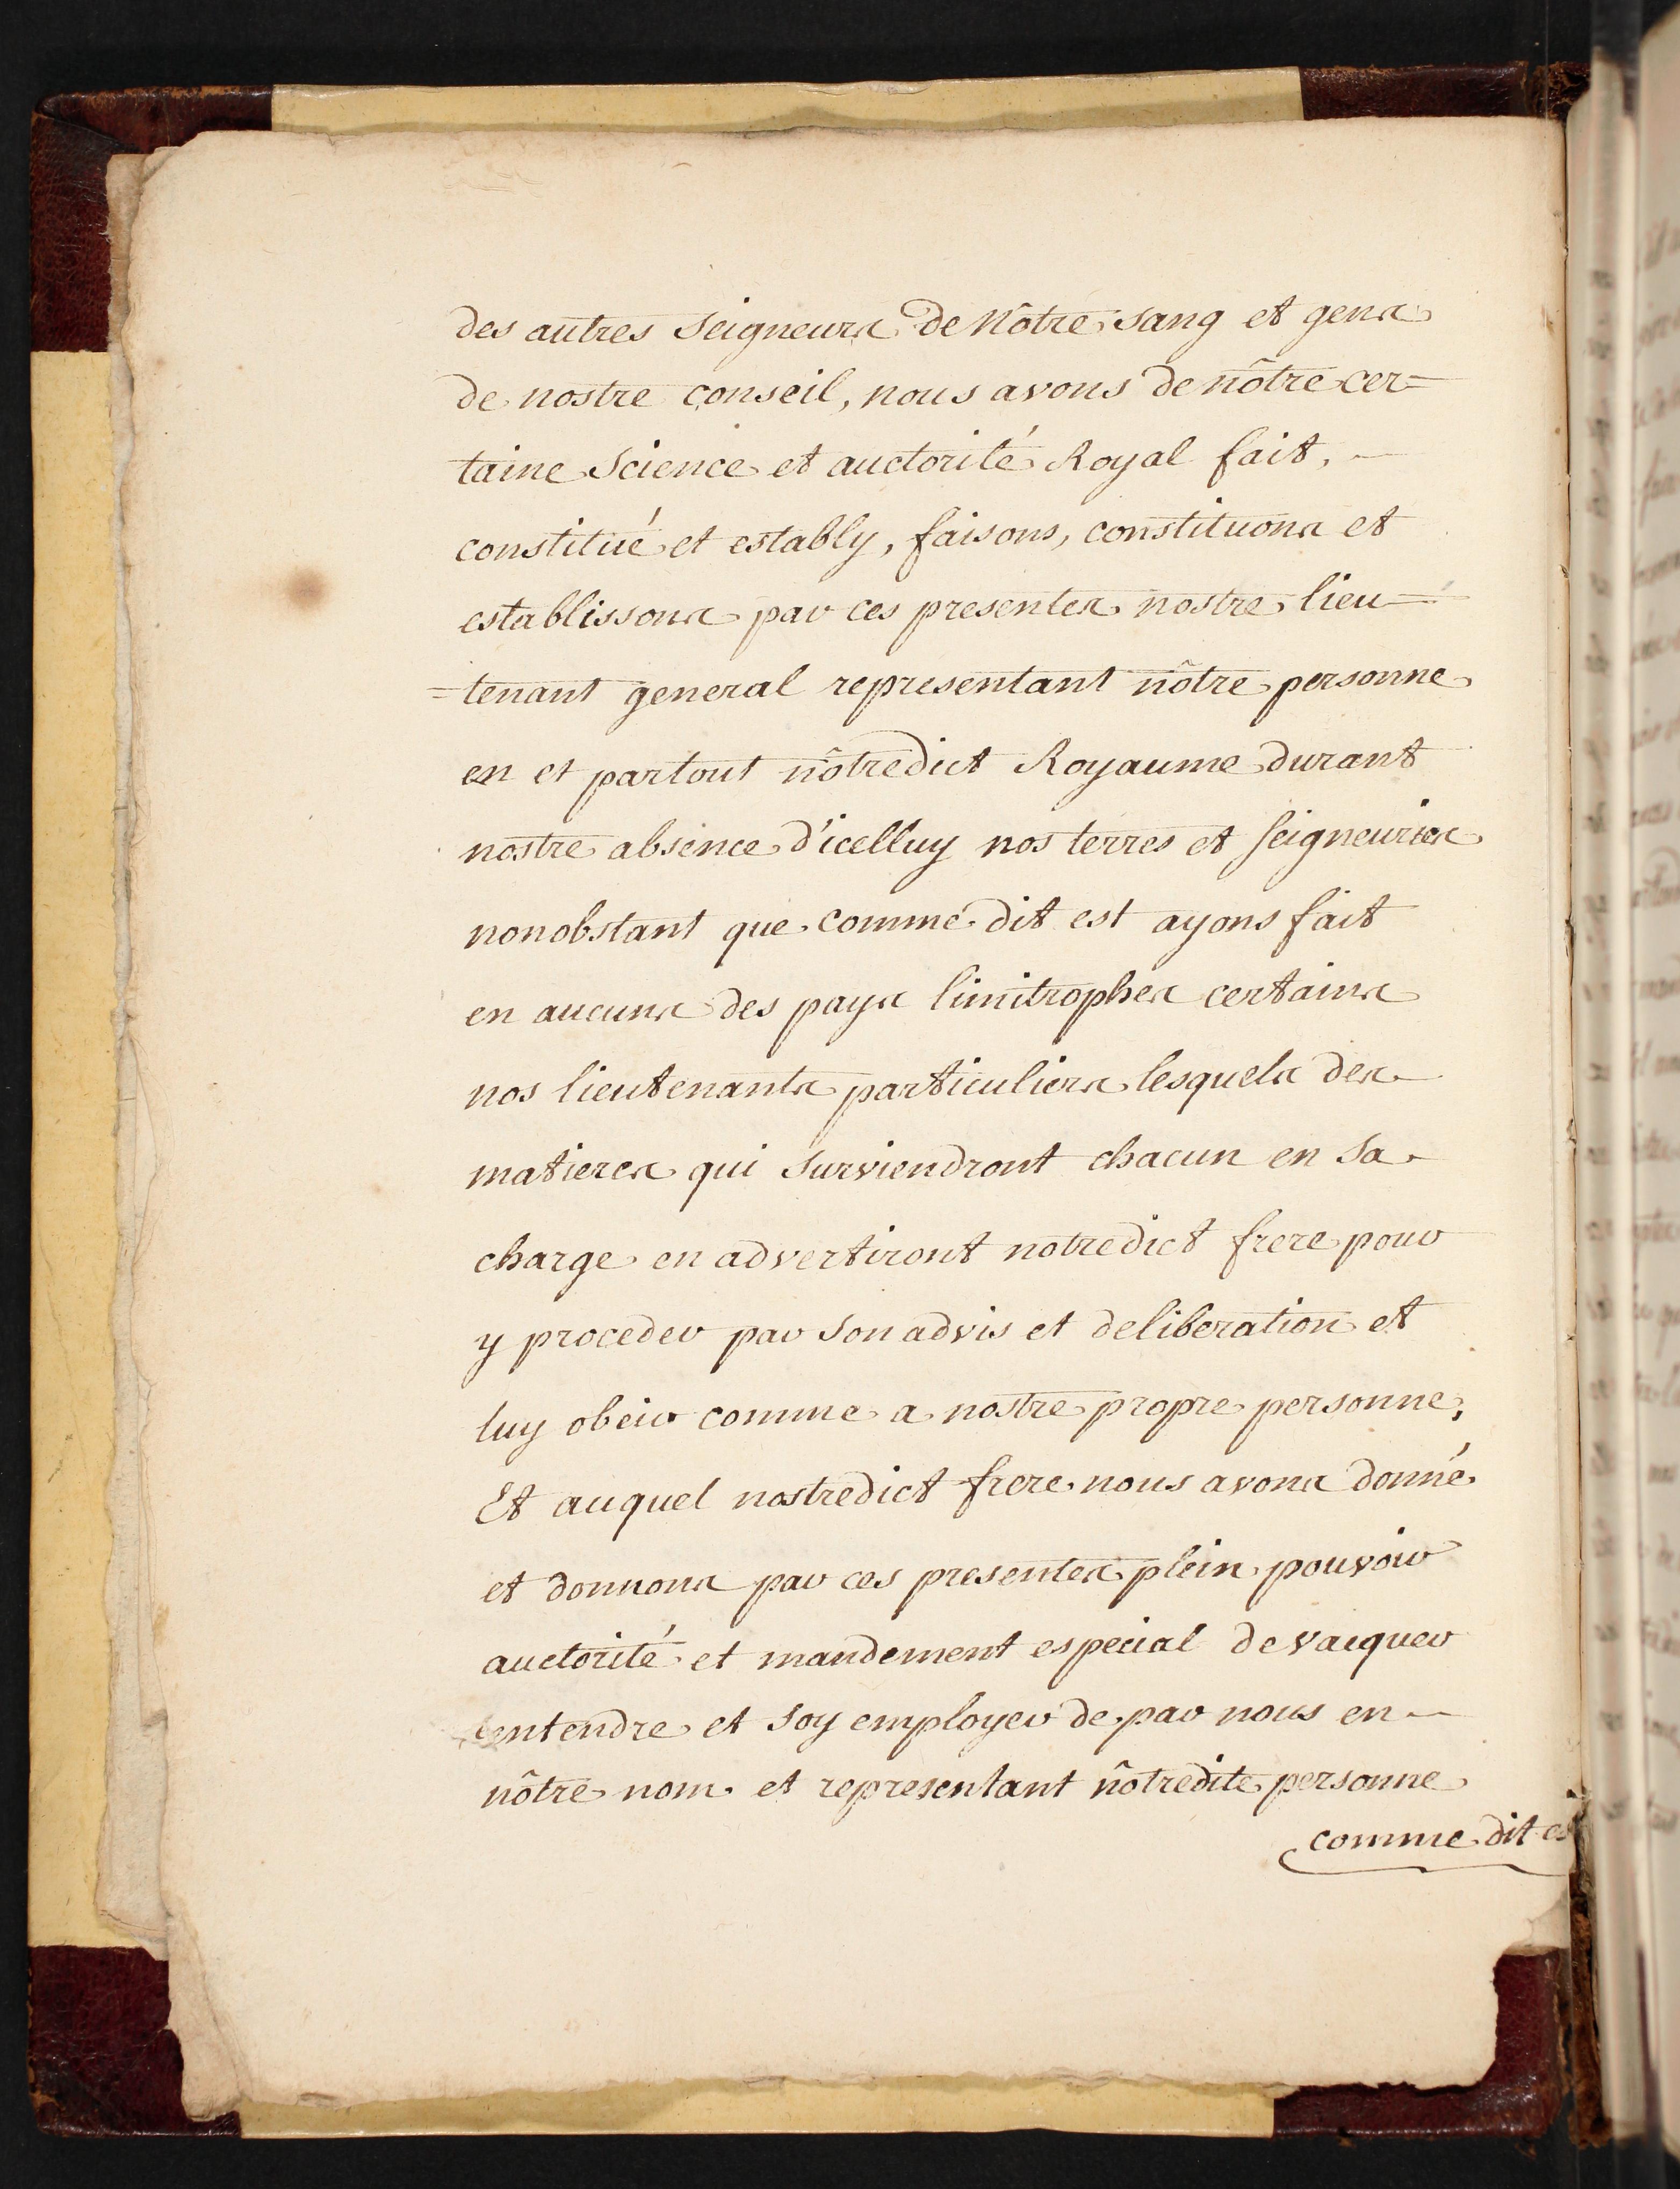 des autres Seigneurs de Nôtre sang et gens
de nostre conseil, nous avons de nôtre cer=
taine Science et auctorité Royal fait,
constitué et estably, faisons, constituons et
establissons par ces presentes nostre lieu=
=tenant general representant nôtre personne
en et partout nôtredict Royaume durant
nostre absence d'icelluy nos terres et seigneuries
nonobstant que comme dit est ayons fait
en aucuns des pays limitrophes certains
nos lieutenants particuliers lesquels des
matieres qui surviendront chacun en sa
charge en advertiront notredict frere pour
y proceder par son advis et deliberation et
luy obeir comme a nostre propre personne,
Et auquel nostredict frere nous avons donné
et donnons par ces presentes plein pouvoir
auctorité et mandement especial de vacquer
entendre et soy employer de par nous en
nôtre nom et representant nôtredite personne
comme dit